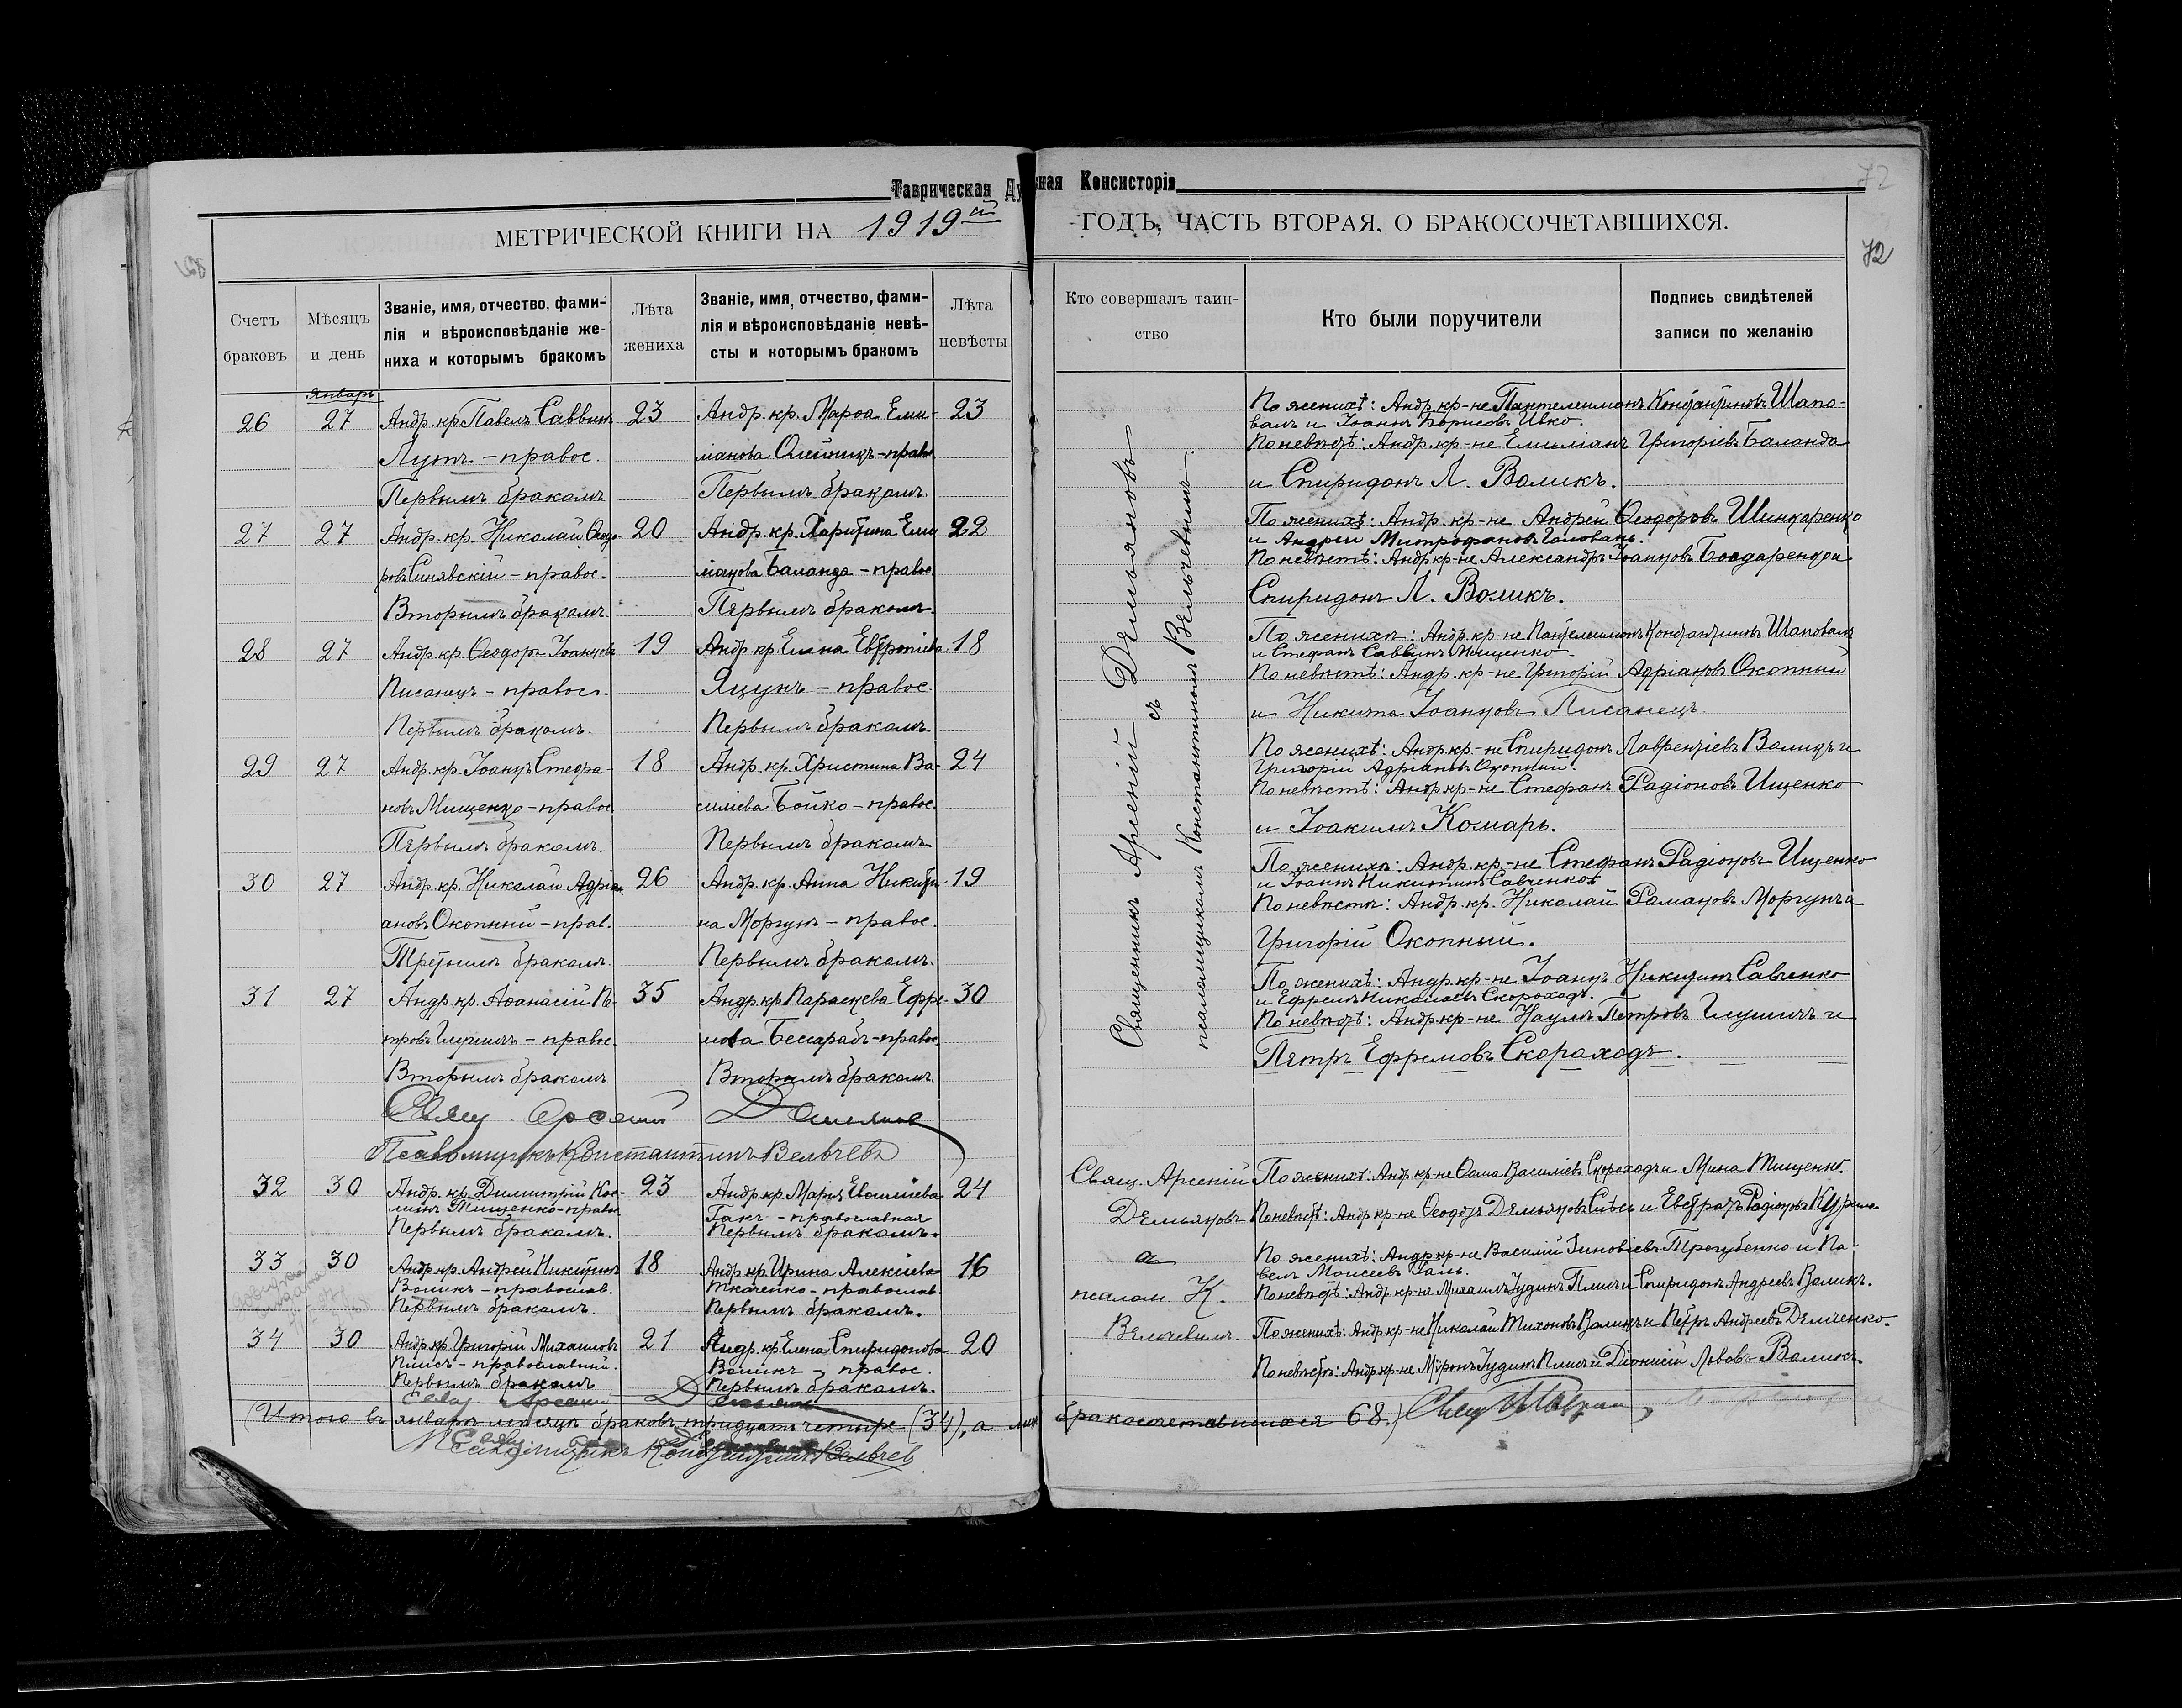 Таврическая Духовная Консисторія
72
МЕТРИЧЕСКОЙ КНИГИ НА 1919й ГОДЪ, ЧАСТЬ ВТОРАЯ, О БРАКОСОЧЕТАВШИХСЯ.
72
Счетъ браковъ
Мѣсяцъ и день
Званіе, имя, отчество, фами-
лія и вѣроисповѣданіе же-
ниха и которымъ бракомъ
Лѣта жениха
Званіе, имя, отчество, фами-
лія и вѣроисповѣданіе невѣ-
сты и которымъ бракомъ
Лѣта невѣсты
Кто совершалъ таин-
ство
Кто были поручители
Подпись свидѣтелей
записи по желанію
Январь
26 27 Андр. кр. Павелъ Саввин 23 Андр. кр. Марѳа Еми- 23
Лутъ - правос. мiанова Олейникъ - прав.
Первымъ бракомъ Первымъ бракомъ.
По женихѣ: Андр. кр-не Пантелеимонъ Константиновъ Шапо-
валъ и Іоаннъ Борисовъ Ивко.
По невѣстѣ: Андр. кр-не Емиліанъ Григоріевъ Баланда
и Спиридонъ Л. Воликъ.
27 27 Андр. кр. Николай Ѳеодо- 20 Андр. кр. Харитина Еми 22
ровъ Синявскій - правос. міанова Баланда - правос.
Вторымъ бракомъ. Первымъ бракомъ.
По женихѣ: Андр. кр-не Андрей Ѳеодоровъ Шинкаренко
и Андрей Митрофановъ Головань.
По невѣстѣ: Андр. кр-не Александръ Іоанновъ Бондаренко и
Спиридонъ Л. Воликъ.
28 27 Андр. кр. Ѳеодоръ Іоанновъ 19 Андр. кр. Елена Евтропіева 18
Писанецъ - правос. Яцунъ - правос.
Первымъ бракомъ. Первымъ бракомъ.
По женихѣ: Андр. кр-не Пантелеимонъ Константиновъ Шаповалъ
и Стефанъ Саввинъ Мищенко
По невѣстѣ: Андр. кр-не Григорій Адріановъ Окопный
и Никита Іоанновъ Писанецъ.
29 27 Андр. кр. Іоаннъ Стефа- 18 Андр. кр. Христина Ва- 24
новъ Мищенко - правос. силіева Бойко - правос.
Первымъ бракомъ. Первымъ бракомъ
По женихѣ: Андр. кр-не Спиридонъ Лаврентіевъ Воликъ и
Григорій Адріановъ Окопный.
По невѣстѣ: Андр. кр-не Стефанъ Радіоновъ Ищенко
и Іоакимъ Комарь.
30 27 Андр. кр. Николай Адрі- 26 Андр. кр. Анна Никити- 19
ановъ Окопный - прав. на Моргунъ - правос.
Третьимъ бракомъ. Первымъ бракомъ.
По женихѣ: Андр. кр-не Стефанъ Радіоновъ Ищенко
и Іоаннъ Никитинъ Савченко
По невѣстѣ: Андр. кр. Николай Рамановъ Моргунъ и
Григорій Окопный.
31 27 Андр. кр. Аѳанасій Пе- 35 Андр. кр. Параскева Ефре- 30
тровъ - правос. мова Бессарабъ - правос.
Вторымъ бракомъ. Вторымъ бракомъ.
По женихѣ: Андр. кр-не Іоаннъ Никитинъ Савченко
и Ефремъ Николаевъ Скороходъ.
По невѣстѣ: Андр. кр-не Наумъ Петровъ и
Петръ Ефремовъ Скороходъ.
Священникъ Арсеній Демьяновъ
съ
псаломщикомъ Константиномъ Вельчевымъ.
Свящ. Арсеній Демьянов
Псаломщикъ Константинъ Вельчевъ
32 30 Андр. кр. Димитрій Кос- 23 Андр. кр. Марія 24
минъ Тищенко - правос. Гакъ - православная
Первымъ бракомъ. Первымъ бракомъ.
Свящ. Арсеній По женихѣ: Андр. кр-не Ѳома Василіевъ Скороходъ и Мина Тищенко.
Демьяновъ По невѣстѣ: Андр. кр-не Ѳеодотъ Демьяновъ и Евстратъ Радіоновъ
33 30 Андр. кр. Андрей Никитинъ 18 Андр. кр. Ирина Алексіева 16
Воликъ - православ. Ткаченко - православ.
Первымъ бракомъ. Первымъ бракомъ.
а По женихѣ: Андр. кр-не Василій Зиновіевъ Трегубенко и Па-
велъ Моисеевъ Галь.
псалом. К. По невѣстѣ: Андр. кр-не Михаилъ Іудинъ Плисъ и Спиридонъ Андреевъ Воликъ.
34 30 Андр. кр. Григорій Михаиловъ 21 Андр. кр. Елена Спиридонова 20
Плисъ - православный. Воликъ - правос.
Первымъ бракомъ Первымъ бракомъ.
Вельчевымъ По женихѣ: Андр. кр-не Николай Тихоновъ Воликъ и Петръ Андреевъ Демченко.
По невѣстѣ: Андр. кр-не Миронъ Іудинъ Плисъ и Діонисій Львовъ Воликъ.
Свящ. Арсений Демьянов
(Итого въ январѣ мѣсяцѣ браковъ тридцать четыре (34), а лицъ бракосочетавшихся 68.) Свящ.
Псаломщикъ Константинъ Вельчев